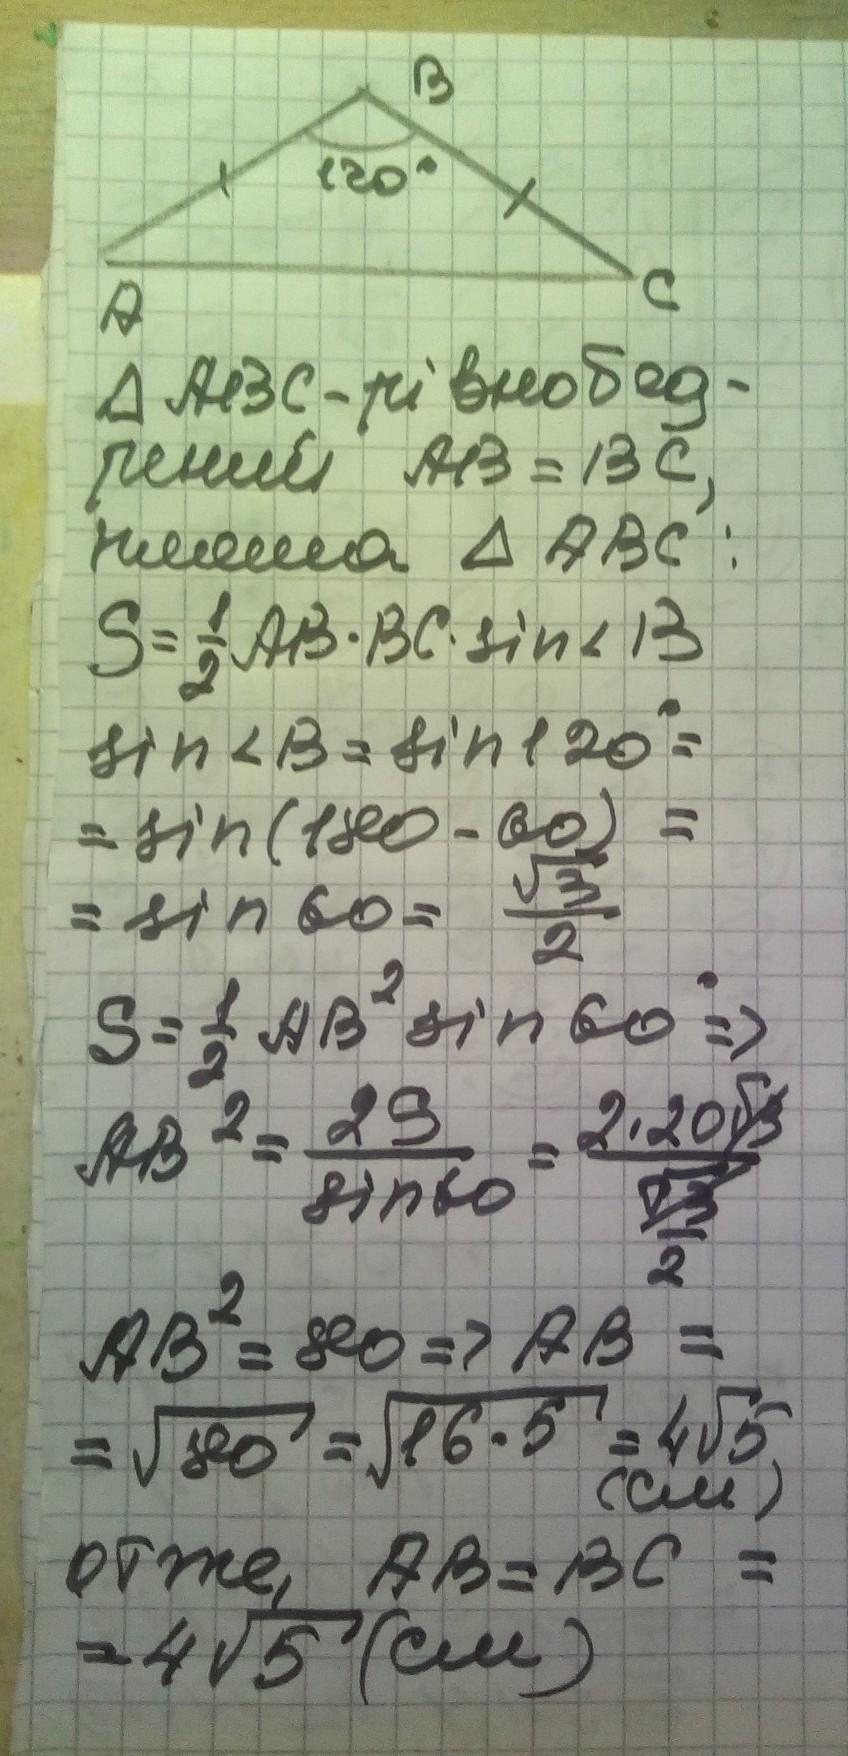 B
120°
A
C
Δ ABC - рівнобед-
рений AB = BC,
площа Δ ABC :
S = 1/2 AB · BC · sin < B
sin < B = sin 120° =
= sin (180 - 60) =
= sin 60 = √3/2
S = 1/2 AB² sin 60° =>
AB² = 2S/sin 60 = 2·20√3/(√3/2)
AB² = 80 => AB =
= √80 = √16·5 = 4√5
(см)
отже, AB = BC =
= 4√5 (см)